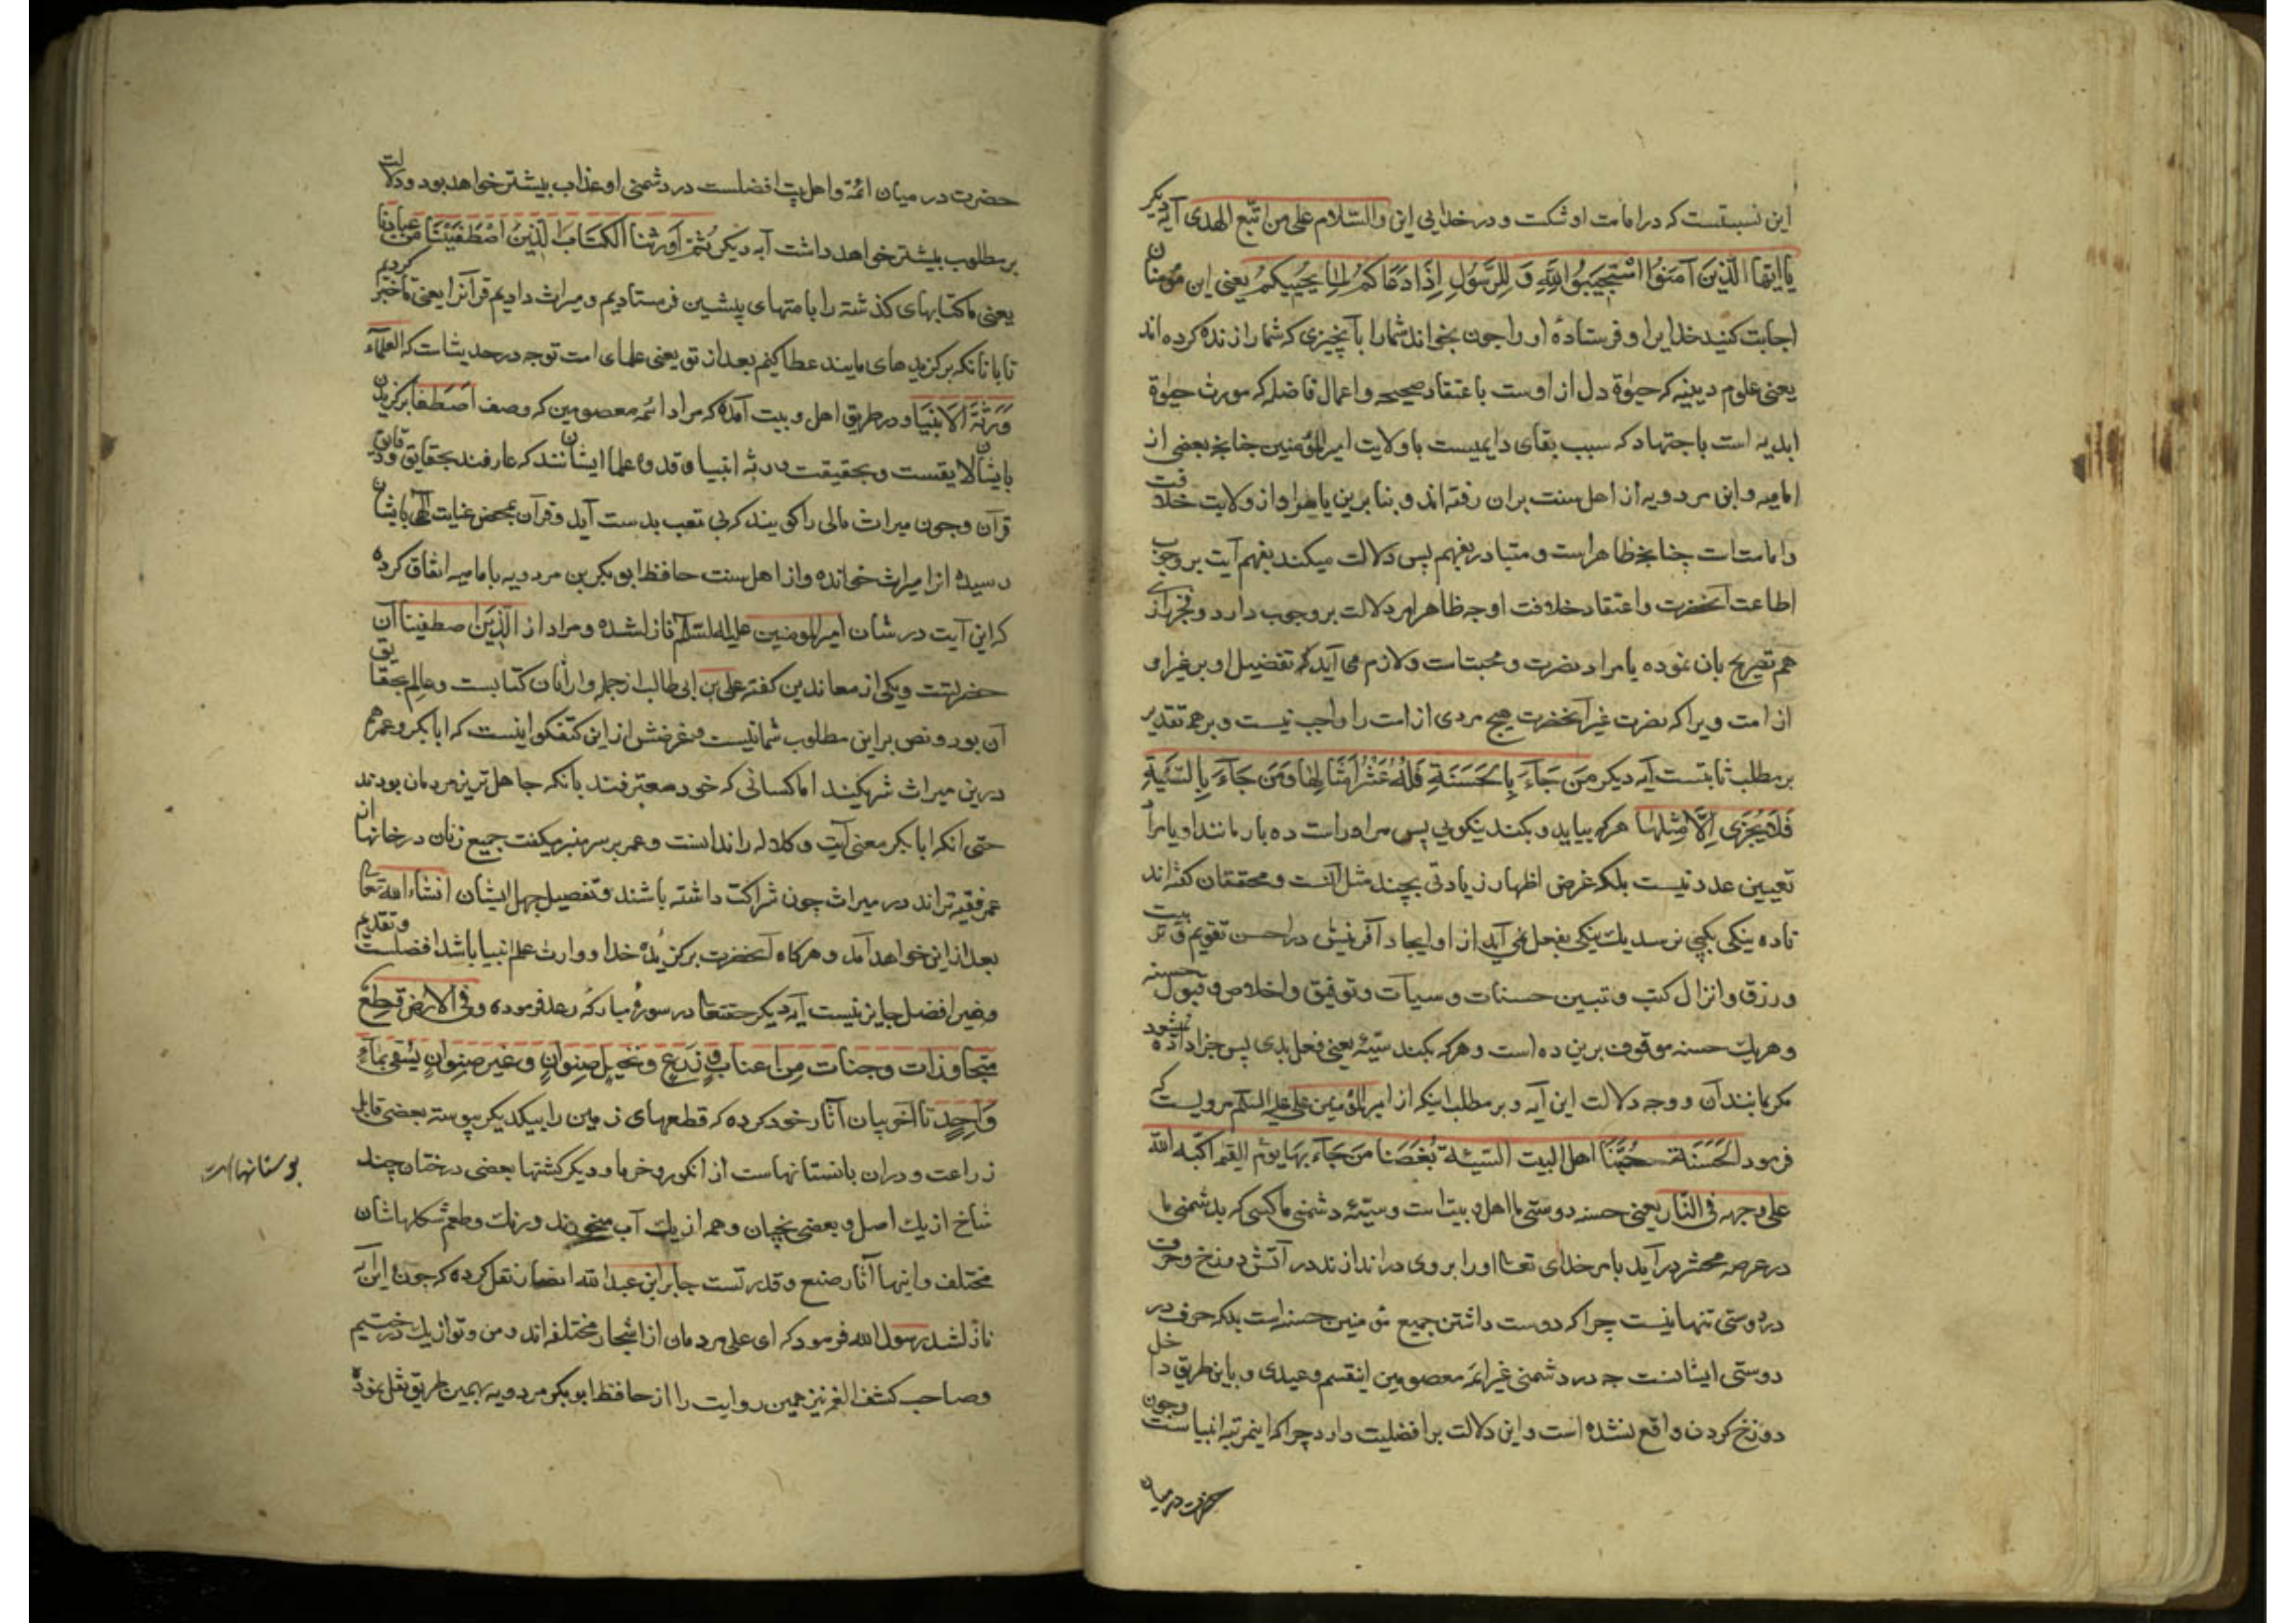 این نسبتست که در امامت او شکست و در خدایی این والسّلام علی من اتّبع الهدی آیه دیگر
یا ایّها الّذین آمَنوُا اسْتَجیبوُا لِلّهِ وَ لِلرَّسُولِ اِذَا دَعَاکُم لِما یُحیِیکُم یعنی این مؤمنان
اجابت کنید خدایرا و فرستادۀ او را چون بخواند شما را بآنچیزی که شما را زنده کرده‌اند
یعنی علوم دینیه که حیوة دل از اوست با عتقاد صحیحه و اعمال فاضله که مورث حیوة
ابدیه است با جتهاد که سبب بقای دایمیست با ولایت امیرالمؤمنین چنانچه بعضی از
امامیه و ابن مردویه از اهل سنت بران رفته‌اند و بنا برین یا مراد از ولایت خلافت
و امامتست چنانچه ظاهر است و متبادر بفهم پس دلالت میکند بفهم آیت بر وجوب
اطاعت آنحضرت و اعتقاد خلافت او چه ظاهر امر دلالت بر وجوب دارد و
هم تصریح بان نموده یا مراد نصرت و محبتست و لازم می آید که تفضیل او بر غیر او
از امت ویرا که نصرت غیر آنحضرت هیچ مردی از امت را واجب نیست و بر هر تقدیر
بر مطلب ثابتست آیه دیگر مَن جَآءَ بِالحَسَنَةِ فَلَهُ عَشْرُ اَمْثَالِهَا وَمَن جَآءَ بِالسَّیِّئَةِ
فَلَا یُجْزَی اِلَّا مِثْلَهَا هر که بیاید و بکند نیکویی پس مر او راست ده بار مانند او یا مراد
تعیین عدد نیست بلکه غرض اظهار زیادتی بچند مثل آنست و محققان گفته‌اند
تا ده نیکی بکسی نرسد یك نیکی بفعل نمی آید از او ایجاد آفرینش در احسن تقویم و تربیت
و رزق و انزال کتب و تبیین حسنات و سیآت و توفیق و اخلاص و قبول حسنه
و هر یك حسنه موقوف برین ده است و هر که بکند سیّئه یعنی فعل بدی پس جزا داده نشود
مگر بمانند آن و وجه دلالت این آیه و بر مطلب اینکه از امیرالمؤمنین علی علیه السّلم مرویست که
فرمود الحَسَنَة حُبُّنَا اهل البیت السّیئة بُغضنا مَن جَآءَ بهَا یوم القیمة اکبّه الله
علی وجهه فی النّار یعنی حسنه دوستی ما اهل و بیت است و سیّئه دشمنی ما کسی که بدشمنی ما
در عرصه محشر در آید بامر خدای تعالی او را بر وی در اندازند در آتش دوزخ و حرف
در دوستی تنها نیست چرا که دوست داشتن جمیع مؤمنین حسنه است بلکه حرف در
دوستی ایشانست چه در دشمنی غیر ائمه معصومین اینقسم وعیدی و باین طریق داخل
دوزخ کردن واقع نشده است و این دلالت بر افضلیت دارد چرا که اینمرتبه انبیاست و چون
حضرت در میان
حضرت در میان ائمّة و اهل بیت افضلست در دشمنی او عذاب بیشتر خواهد بود و دلالت
بر مطلوب بیشتر خواهد داشت آیه دیگر ثُمَّ اَورَثنَا الکتَابَ الَّذینَ اصْطَفَیْنَا مِن عِبَادِنا
یعنی ما کتابهای گذشته را بامتهای پیشین فرستادیم و میراث دادیم قرآنرا یعنی تأخیر کردیم
تا بانانکه برکزیدهای مایند عطا کنیم بعد از تو یعنی علمای امت تو چه در حدیث است که العلمآء
وَرَثَة الاَنبیَا و در طریق اهل و بیت آمده که مراد ائمّه معصومین که وصف اصطفا برکزیدن
بایشان لایقست و بحقیقت ورثه انبیا و قدوه علما ایشانند که عارفند بحقایق و دقایق
قرآن و چون میراث مالی را گویند که بی تعب بدست آید و قرآن بمحض عنایت الهی بایشان
رسیده انرا میراث خوانده و از اهل سنت حافظ ابو بکر بن مردویه با امامیه اتفاق کرده
که این آیت در شان امیرالمومنین علیه السّلام نازلشده و مراد از الّذین اصطفینا آن
حضرتست و یکی از معاندین گفته علی بن ابی طالب از جمله وارثان کتابست و عالم بحقایق
آن بود و نص بر این مطلوب شما نیست و غرضش از این گفتگو اینست که ابا بکر و عمر هم
درین میراث شریکند اما کسانی که خود معترفند بانکه جاهل ترین مردمان بودند
حتی انکه ابا بکر معنی آیت و کلاله را ندانست و عمر بر سر منبر میگفت جمیع زنان در خانها از
عمر فقیه تراند در میراث چون شراکت داشته باشند و تفصیل جهل ایشان انشاء الله تعالی
بعد از این خواهد آمد و هرکاه آنحضرت برکزیدۀ خدا و وارث علم انبیا باشد افضلست و تقدیم
و غیر افضل جایز نیست آیه دیگر حقتعالی در سورۀ مبارکه رعد فرموده و فی الارض قِطَعٌ
متجاوذات وجنات مِن اعناب و زرَعٍ ونخیل صِنوانٍ وغیر صِنوانٍ یُسقی بمآءٍ
وَاحِدٍ تا آخر بیان آثار خود کرده که قطعهای زمین را بیکدیگر پیوسته بعضی قابل
زراعت و دران بانستانهاست از انگور و خرما و دیگر کشتها بعضی درختان چند
شاخ از یك اصل و بعضی نچنان و هم از یك آب میخورند و رنك و طعم شکلهاشان
مختلف و اینها آثار صنع و قدرتست جابر ابن عبدالله انصار نقل کرده که چون این آیه
نازلشد رسول الله فرمود که ای علی مردمان از اشجار مختلفه‌اند و من و تو از یك درختیم
و صاحب کشف الغمه نیز همین روایت را از حافظ ابو بکر مردویه بهمین طریق نقل نموده
بوستانهاست